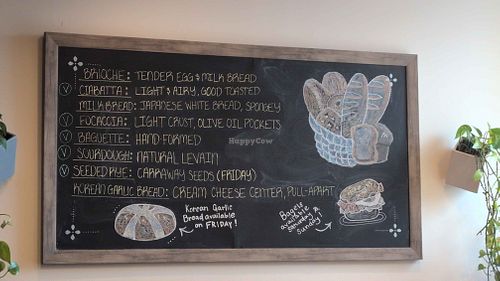 BRIOCHE: TENDER EGG & MILK BREAD
V CIABATTA: LIGHT & AIRY, GOOD TOASTED
MILK BREAD: JAPANESE WHITE BREAD, SPONGEY
V FOCACCIA: LIGHT CRUST, OLIVE OIL POCKETS
V BAGUETTE: HAND FORMED
V SOURDOUGH: NATURAL LEVAIN
V SEEDED RYE: CARRAWAY SEEDS (FRIDAY)
KOREAN GARLIC BREAD: CREAM CHEESE CENTER, PULL-APART
Korean Garlic
Bread available
on FRIDAY!
Bagels
available
Saturday &
Sunday!
HappyCow